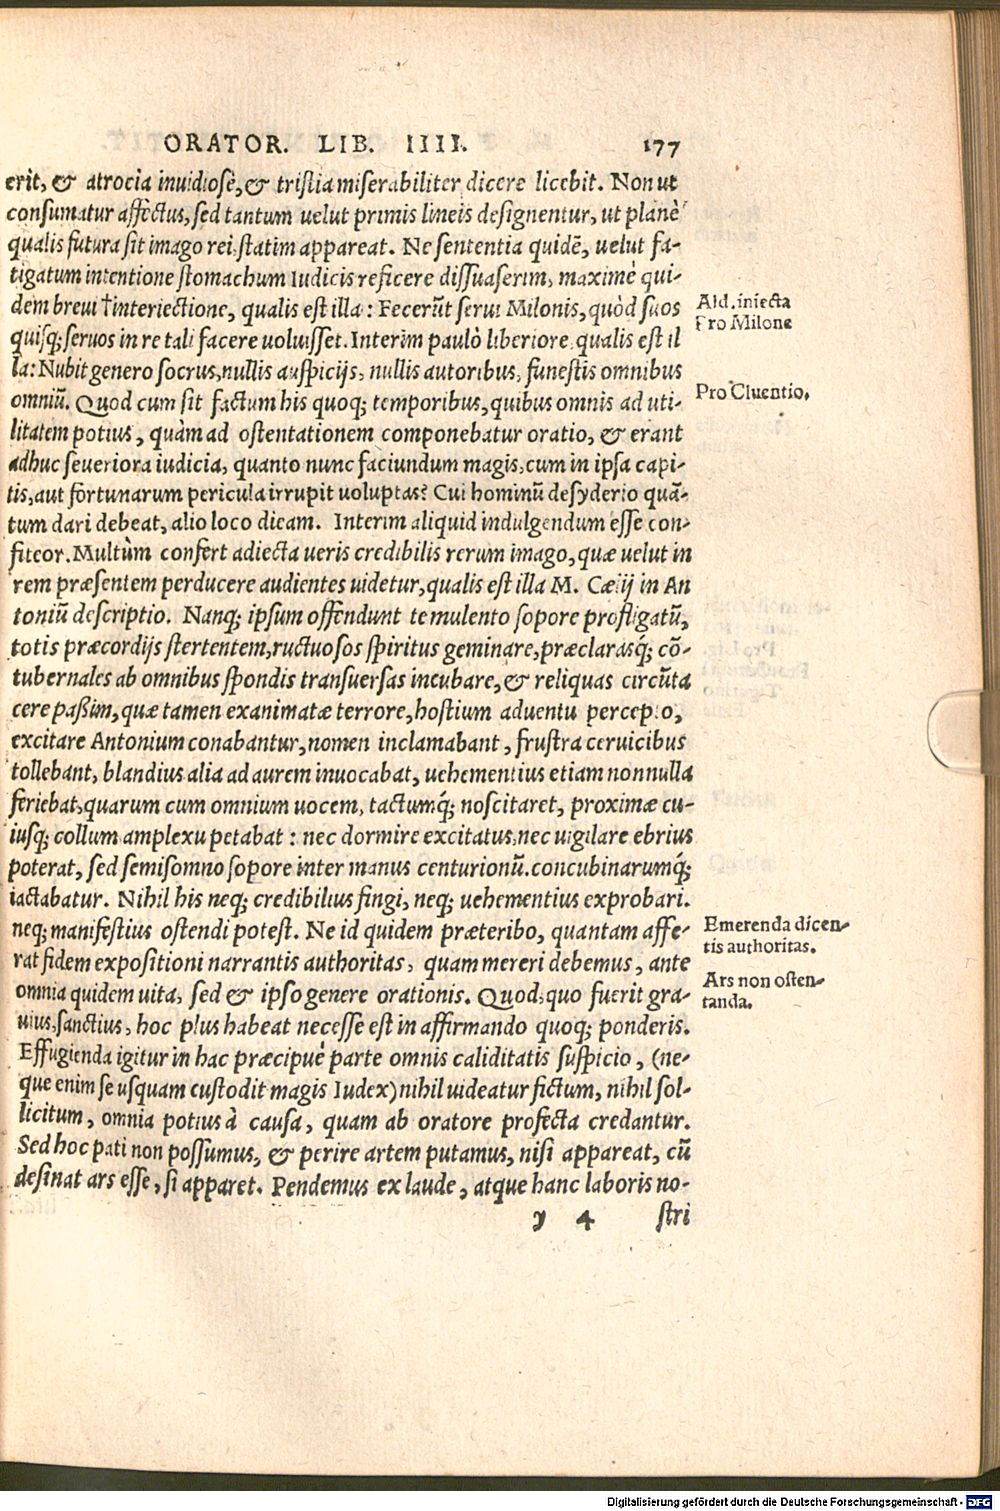 ORATOR. LIB. IIII. 177
erit, & atrocia inuidiosè, & tristia miserabiliter dicere licebit. Non ut
consumatur affectus, sed tantum uelut primis lineis designentur, ut planè
qualis futura sit imago rei, statim appareat. Ne sententia quidẽ, uelut fa-
tigatum intentione stomachum Iudicis reficere dissuaserim, maximè qui-
dem breui †interiectione, qualis est illa: Fecerũt serui Milonis, quòd suos
Ald. iniecta
Pro Milone
quisq; seruos in re tali facere uoluisset. Interim paulò liberiore, qualis est il
la: Nubit genero socrus, nullis auspicijs, nullis autoribus, funestis omnibus
Pro Cluentio.
omniũ. Quod cum sit factum his quoq; temporibus, quibus omnis ad uti-
litatem potius, quàm ad ostentationem componebatur oratio, & erant
adhuc seueriora iudicia, quanto nunc faciundum magis, cum in ipsa capi-
tis, aut fortunarum pericula irrupit uoluptas? Cui hominũ desyderio quã-
tum dari debeat, alio loco dicam. Interim aliquid indulgendum esse con-
fiteor. Multùm confert adiecta ueris credibilis rerum imago, quæ uelut in
rem præsentem perducere audientes uidetur, qualis est illa M. Cælij in An
toniũ descriptio. Nanq; ipsum offendunt temulento sopore profligatũ,
totis præcordijs stertentem, ructuosos spiritus geminare, præclarasq́; cõ-
tubernales ab omnibus spondis transuersas incubare, & reliquas circũia
cere paßim, quæ tamen exanimatæ terrore, hostium aduentu percepto,
excitare Antonium conabantur, nomen inclamabant, frustra ceruicibus
tollebant, blandius alia ad aurem inuocabat, uehementius etiam nonnulla
feriebat, quarum cum omnium uocem, tactumq́; noscitaret, proximæ cu-
iusq; collum amplexu petabat: nec dormire excitatus, nec uigilare ebrius
poterat, sed semisomno sopore inter manus centurionũ, concubinarumq́;
iactabatur. Nihil his neq; credibilius fingi, neq; uehementius exprobari.
neq; manifestius ostendi potest. Ne id quidem præteribo, quantam affe-
Emerenda dicen-
tis authoritas.
rat fidem expositioni narrantis authoritas, quam mereri debemus, ante
omnia quidem uita, sed & ipso genere orationis. Quod, quo fuerit gra-
Ars non osten-
tanda.
uius, sanctius, hoc plus habeat necesse est in affirmando quoq; ponderis.
Effugienda igitur in hac præcipuè parte omnis caliditatis suspicio, (ne-
que enim se usquam custodit magis Iudex) nihil uideatur fictum, nihil sol-
licitum, omnia potius à causa, quam ab oratore profecta credantur.
Sed hoc pati non possumus, & perire artem putamus, nisi appareat, cũ
desinat ars esse, si apparet. Pendemus ex laude, atque hanc laboris no-
y 4 stri
Digitalisierung gefördert durch die Deutsche Forschungsgemeinschaft - DFG